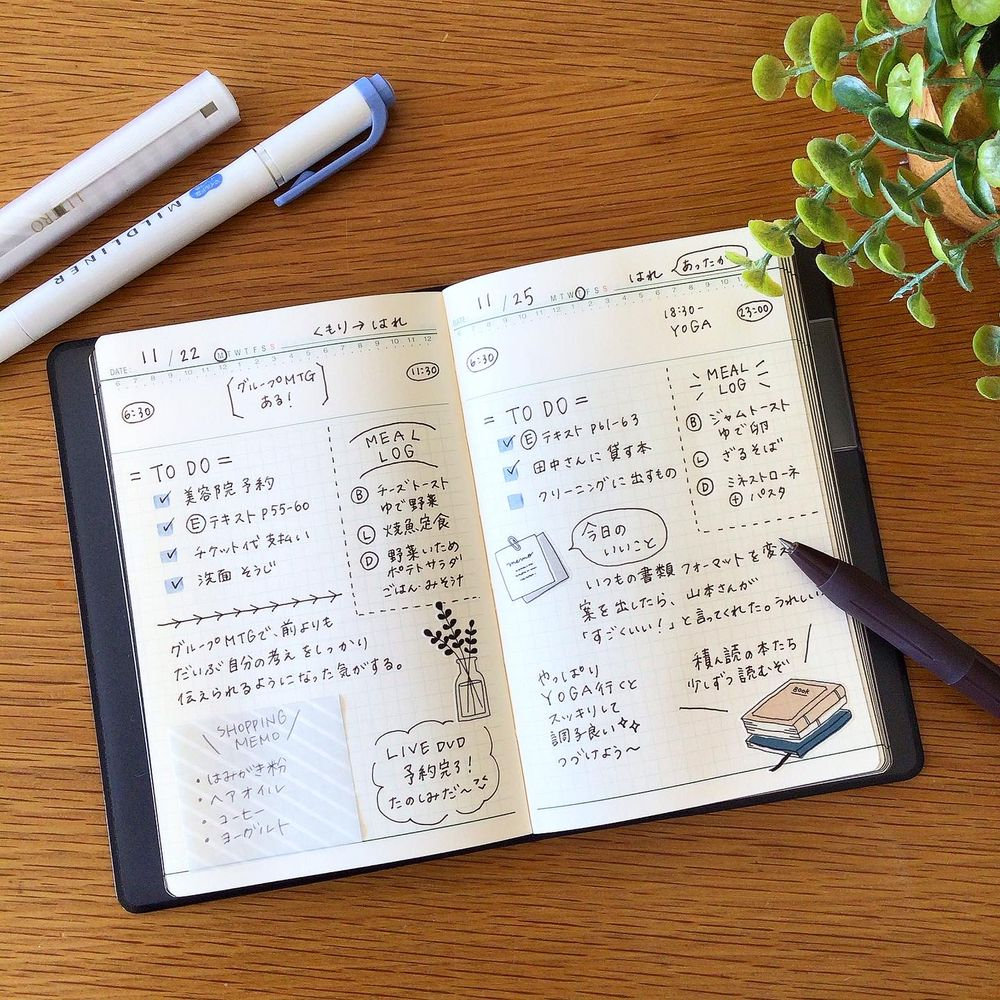 MILDLINER
くもり→はれ
11 / 22 M T W T F S S
DATE:
6 7 8 9 10 11 12
6:30
グループMTG
ある!
11:30
= TO DO =
美容院予約
Ⓔテキスト P55-60
チケット代支払い
洗面 そうじ
MEAL
LOG
Ⓑ チーズトースト
ゆで野菜
Ⓛ 焼魚定食
Ⓓ 野菜いため
ポテトサラダ
ごはん・みそ汁
グループMTGで、前よりも
だいぶ自分の考えをしっかり
伝えられるようになった気がする。
SHOPPING
MEMO
・はみがき粉
・ヘアオイル
・コーヒー
・ヨーグルト
LIVE DVD
予約完了!
たのしみだ〜
はれ
11 / 25 M T W T F S S
DATE:
6:30
18:30-
YOGA
23:00
= TO DO =
Ⓔテキスト P61-63
田中さんに 貸す本
クリーニングに出すもの
MEAL
LOG
Ⓑ ジャムトースト
ゆで卵
Ⓛ ざるそば
Ⓓ ミネストローネ
⊕ パスタ
memo
今日の
いいこと
いつもの書類 フォーマットを変え
案を出したら、山本さんが
「すごくいい!」と言ってくれた。うれしい
やっぱり
YOGA行くと
スッキリして
調子良い
つづけよう〜
積ん読の本たち
少しずつ読むぞ
BOOK